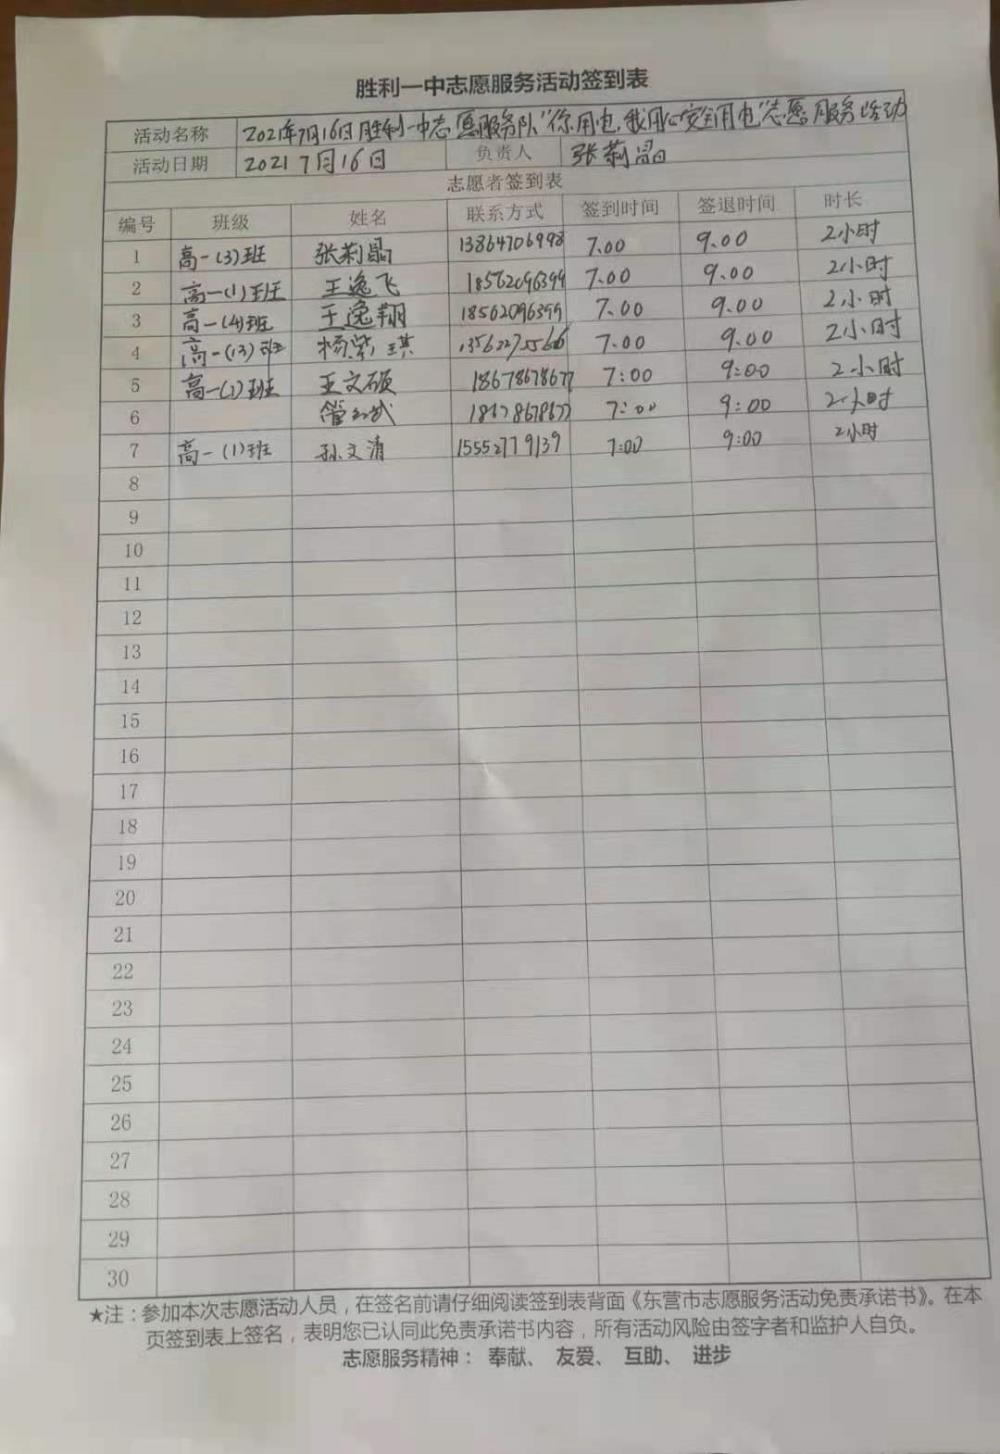 胜利一中志愿服务活动签到表
活动名称 2021年7月16日胜利一中志愿服务队"你用电,我用心安全用电"志愿服务活动
活动日期 2021 7月16日 负责人 张莉晶
志愿者签到表
编号 班级 姓名 联系方式 签到时间 签退时间 时长
1 高一(3)班 张莉晶 13864706998 7.00 9.00 2小时
2 高一(1)班 王逸飞 18562096399 7.00 9.00 2小时
3 高一(4)班 王逸翔 18562096399 7.00 9.00 2小时
4 高一(13)班 杨紫琪 7.00 9.00 2小时
5 高一(2)班 王文硕 18678678677 7:00 9:00 2小时
6 7:00 9:00 2小时
7 高一(1)班 孙文清 15552779139 7:00 9:00 2小时
8
9
10
11
12
13
14
15
16
17
18
19
20
21
22
23
24
25
26
27
28
29
30
★注：参加本次志愿活动人员，在签名前请仔细阅读签到表背面《东营市志愿服务活动免责承诺书》。在本
页签到表上签名，表明您已认同此免责承诺书内容，所有活动风险由签字者和监护人自负。
志愿服务精神： 奉献、 友爱、 互助、 进步